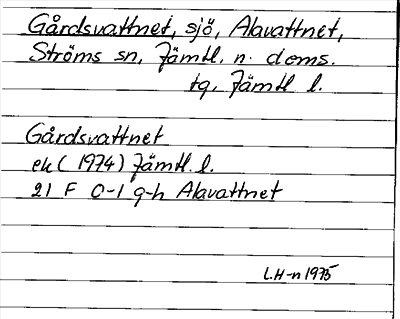 Gårdsvattnet, sjö, Alavattnet,
Ströms sn, Jämtl. n. doms.
tg, Jämtl l.
Gårdsvattnet
ek (1974) Jämtl. l.
21 F 0-1 g-h Alavattnet
L.H-n 1975